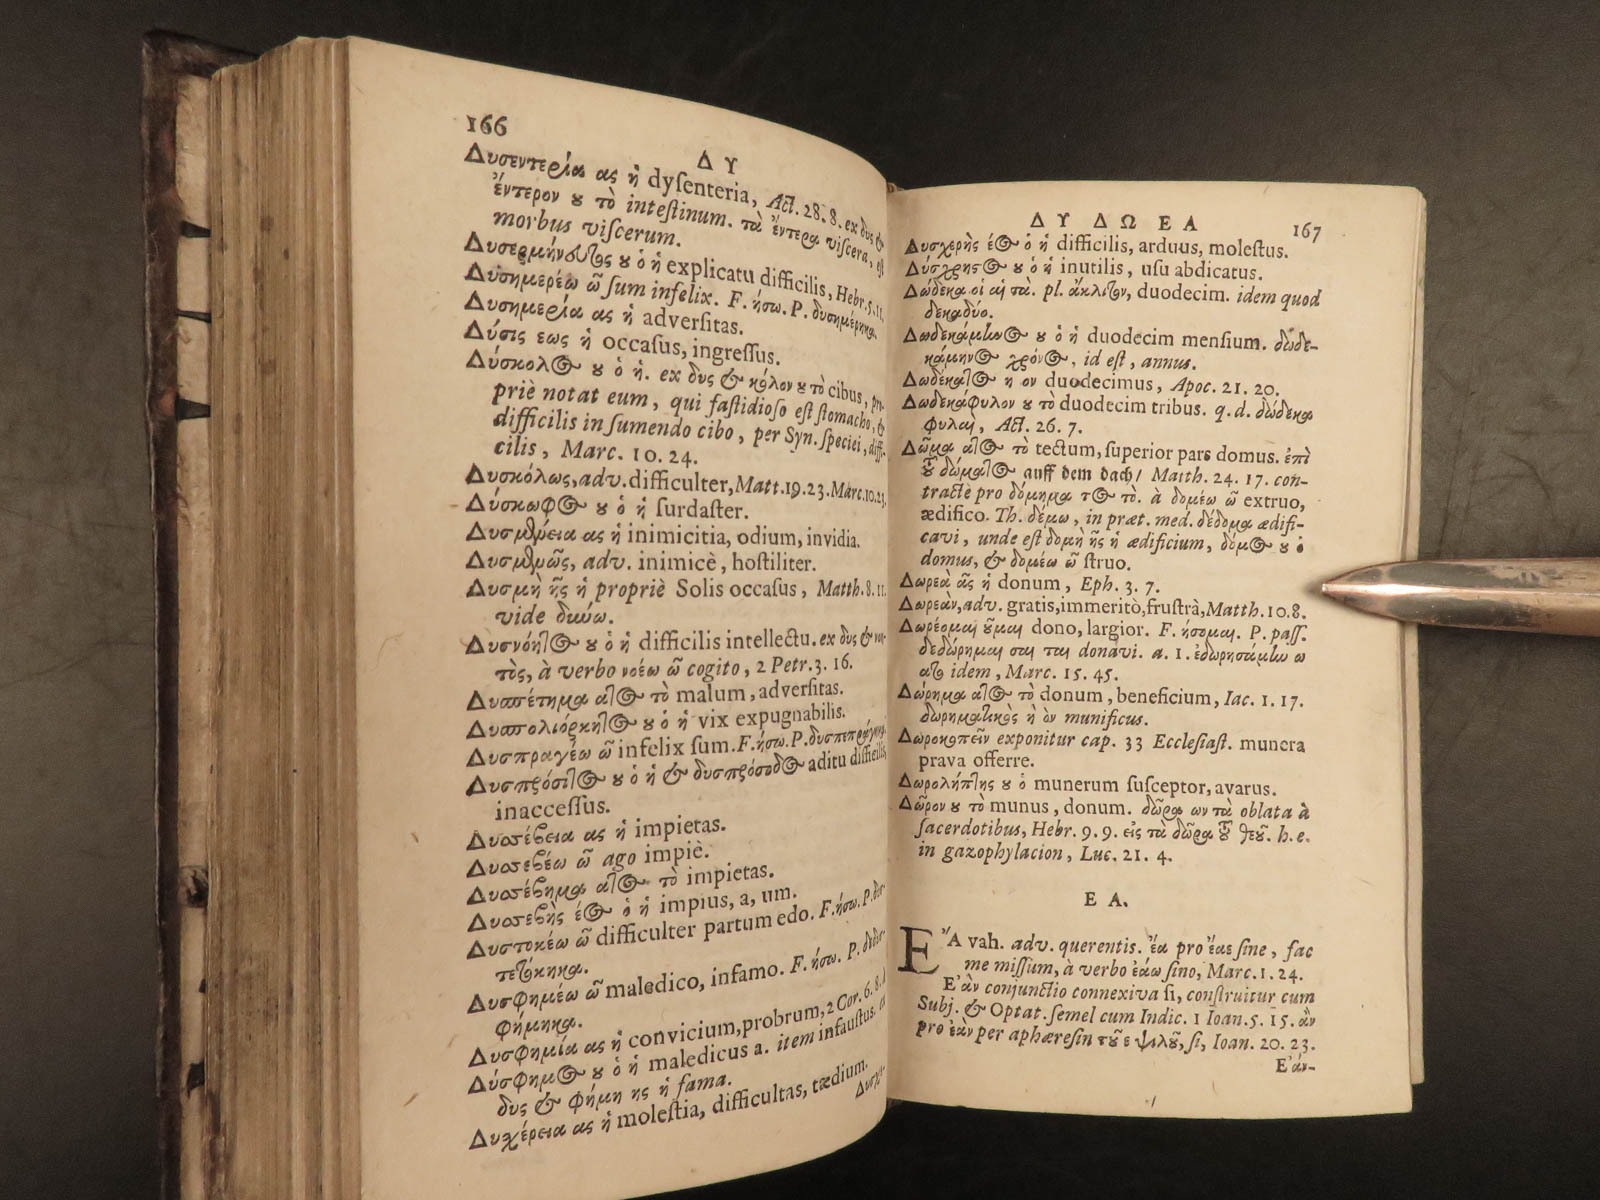 166
Δ Υ
Δυσεντερία ας ἡ dyſenteria, Act. 28. 8. ex δυς &
ἔντερον ȣ τὸ inteſtinum. τὰ ἔντερα viſcera, eſt
morbus viſcerum.
Δυσερμήνευτος ȣ ὁ ἡ explicatu difficilis, Hebr. 5. 11.
Δυσημερέω ῶ ſum infelix. F. ήσω. P. δυσημέρηκα.
Δυσημερία ας ἡ adverſitas.
Δύσις εως ἡ occaſus, ingreſſus.
Δύσκολος ȣ ὁ ἡ. ex δυς & κόλον ȣ τὸ cibus, pro-
priè notat eum, qui faſtidioſo eſt ſtomacho, &
difficilis in ſumendo cibo, per Syn. ſpeciei, diffi-
cilis, Marc. 10. 24.
Δυσκόλως, adv. difficulter, Matt. 19. 23. Marc. 10. 23.
Δύσκωφος ȣ ὁ ἡ ſurdaſter.
Δυσμένεια ας ἡ inimicitia, odium, invidia.
Δυσμενῶς, adv. inimicè, hoſtiliter.
Δυσμὴ ῆς ἡ propriè Solis occaſus, Matth. 8. 11.
vide δύνω.
Δυσνόητος ȣ ὁ ἡ difficilis intellectu. ex δυς & νοη-
τὸς, à verbo νοέω ῶ cogito, 2 Petr. 3. 16.
Δυσπέτημα ατος τὸ malum, adverſitas.
Δυσπολιόρκητος ȣ ὁ ἡ vix expugnabilis.
Δυσπραγέω ῶ infelix ſum. F. ήσω. P. δυσπεπράγηκα.
Δυσπρόσιτος ȣ ὁ ἡ & δυσπρόσοδος aditu difficilis,
inacceſſus.
Δυσσέβεια ας ἡ impietas.
Δυσσεβέω ῶ ago impiè.
Δυσσέβημα ατος τὸ impietas.
Δυσσεβὴς έος ὁ ἡ impius, a, um.
Δυστοκέω ῶ difficulter partum edo. F. ήσω. P. δυς-
τετόκηκα.
Δυσφημέω ῶ maledico, infamo. F. ήσω. P. δεδυσ-
φήμηκα.
Δυσφημία ας ἡ convicium, probrum, 2 Cor. 6. 8.
Δύσφημος ȣ ὁ ἡ maledicus a. item infauſtus. à
δυς & φήμη ης ἡ fama.
Δυχέρεια ας ἡ moleſtia, difficultas, tædium.
Δυσχε-
Δ Υ Δ Ω Ε Α
167
Δυσχερὴς έος ὁ ἡ difficilis, arduus, moleſtus.
Δύσχρηστος ȣ ὁ ἡ inutilis, uſu abdicatus.
Δώδεκα οἱ αἱ τὰ. pl. ἄκλιτον, duodecim. idem quod
δεκαδύο.
Δωδεκάμηνος ȣ ὁ ἡ duodecim menſium. δωδε-
κάμηνος χρόνος, id eſt, annus.
Δωδέκατος η ον duodecimus, Apoc. 21. 20.
Δωδεκάφυλον ȣ τὸ duodecim tribus. q. d. δώδεκα
φυλαὶ, Act. 26. 7.
Δῶμα ατος τὸ tectum, ſuperior pars domus. ἐπὶ
τοῦ δώματος auff dem dach/ Matth. 24. 17. con-
tractè pro δόμημα τος τὸ. à δομέω ῶ extruo,
ædifico. Th. δέμω, in præt. med. δέδομα ædifi-
cavi, unde eſt δομὴ ῆς ἡ ædificium, δόμος ȣ ὁ
domus, & δομέω ῶ ſtruo.
Δωρεὰ ᾶς ἡ donum, Eph. 3. 7.
Δωρεὰν, adv. gratis, immeritò, fruſtrà, Matth. 10. 8.
Δωρέομαι οῦμαι dono, largior. F. ήσομαι. P. paſſ.
δεδώρημαι σαι ται donavi. a. 1. ἐδωρησάμην ω
ατο idem, Marc. 15. 45.
Δώρημα ατος τὸ donum, beneficium, Iac. 1. 17.
δωρηματικὸς ὴ ὸν munificus.
Δωροκοπεῖν exponitur cap. 33 Eccleſiaſt. munera
prava offerre.
Δωρολήπτης ȣ ὁ munerum ſuſceptor, avarus.
Δῶρον ȣ τὸ munus, donum. δῶρα ων τὰ oblata à
ſacerdotibus, Hebr. 9. 9. εἰς τὰ δῶρα τοῦ θεοῦ. h. e.
in gazophylacion, Luc. 21. 4.
Ε Α.
Ἔ Α vah. adv. querentis. ἔα pro ἔαε ſine, fac
me miſſum, à verbo ἐάω ſino, Marc. 1. 24.
Ἐὰν conjunctio connexiva ſi, conſtruitur cum
Subj. & Optat. ſemel cum Indic. 1 Ioan. 5. 15. ἂν
pro ἐὰν per aphæreſin τοῦ ε ψιλοῦ, ſi, Ioan. 20. 23.
Ἐάν-